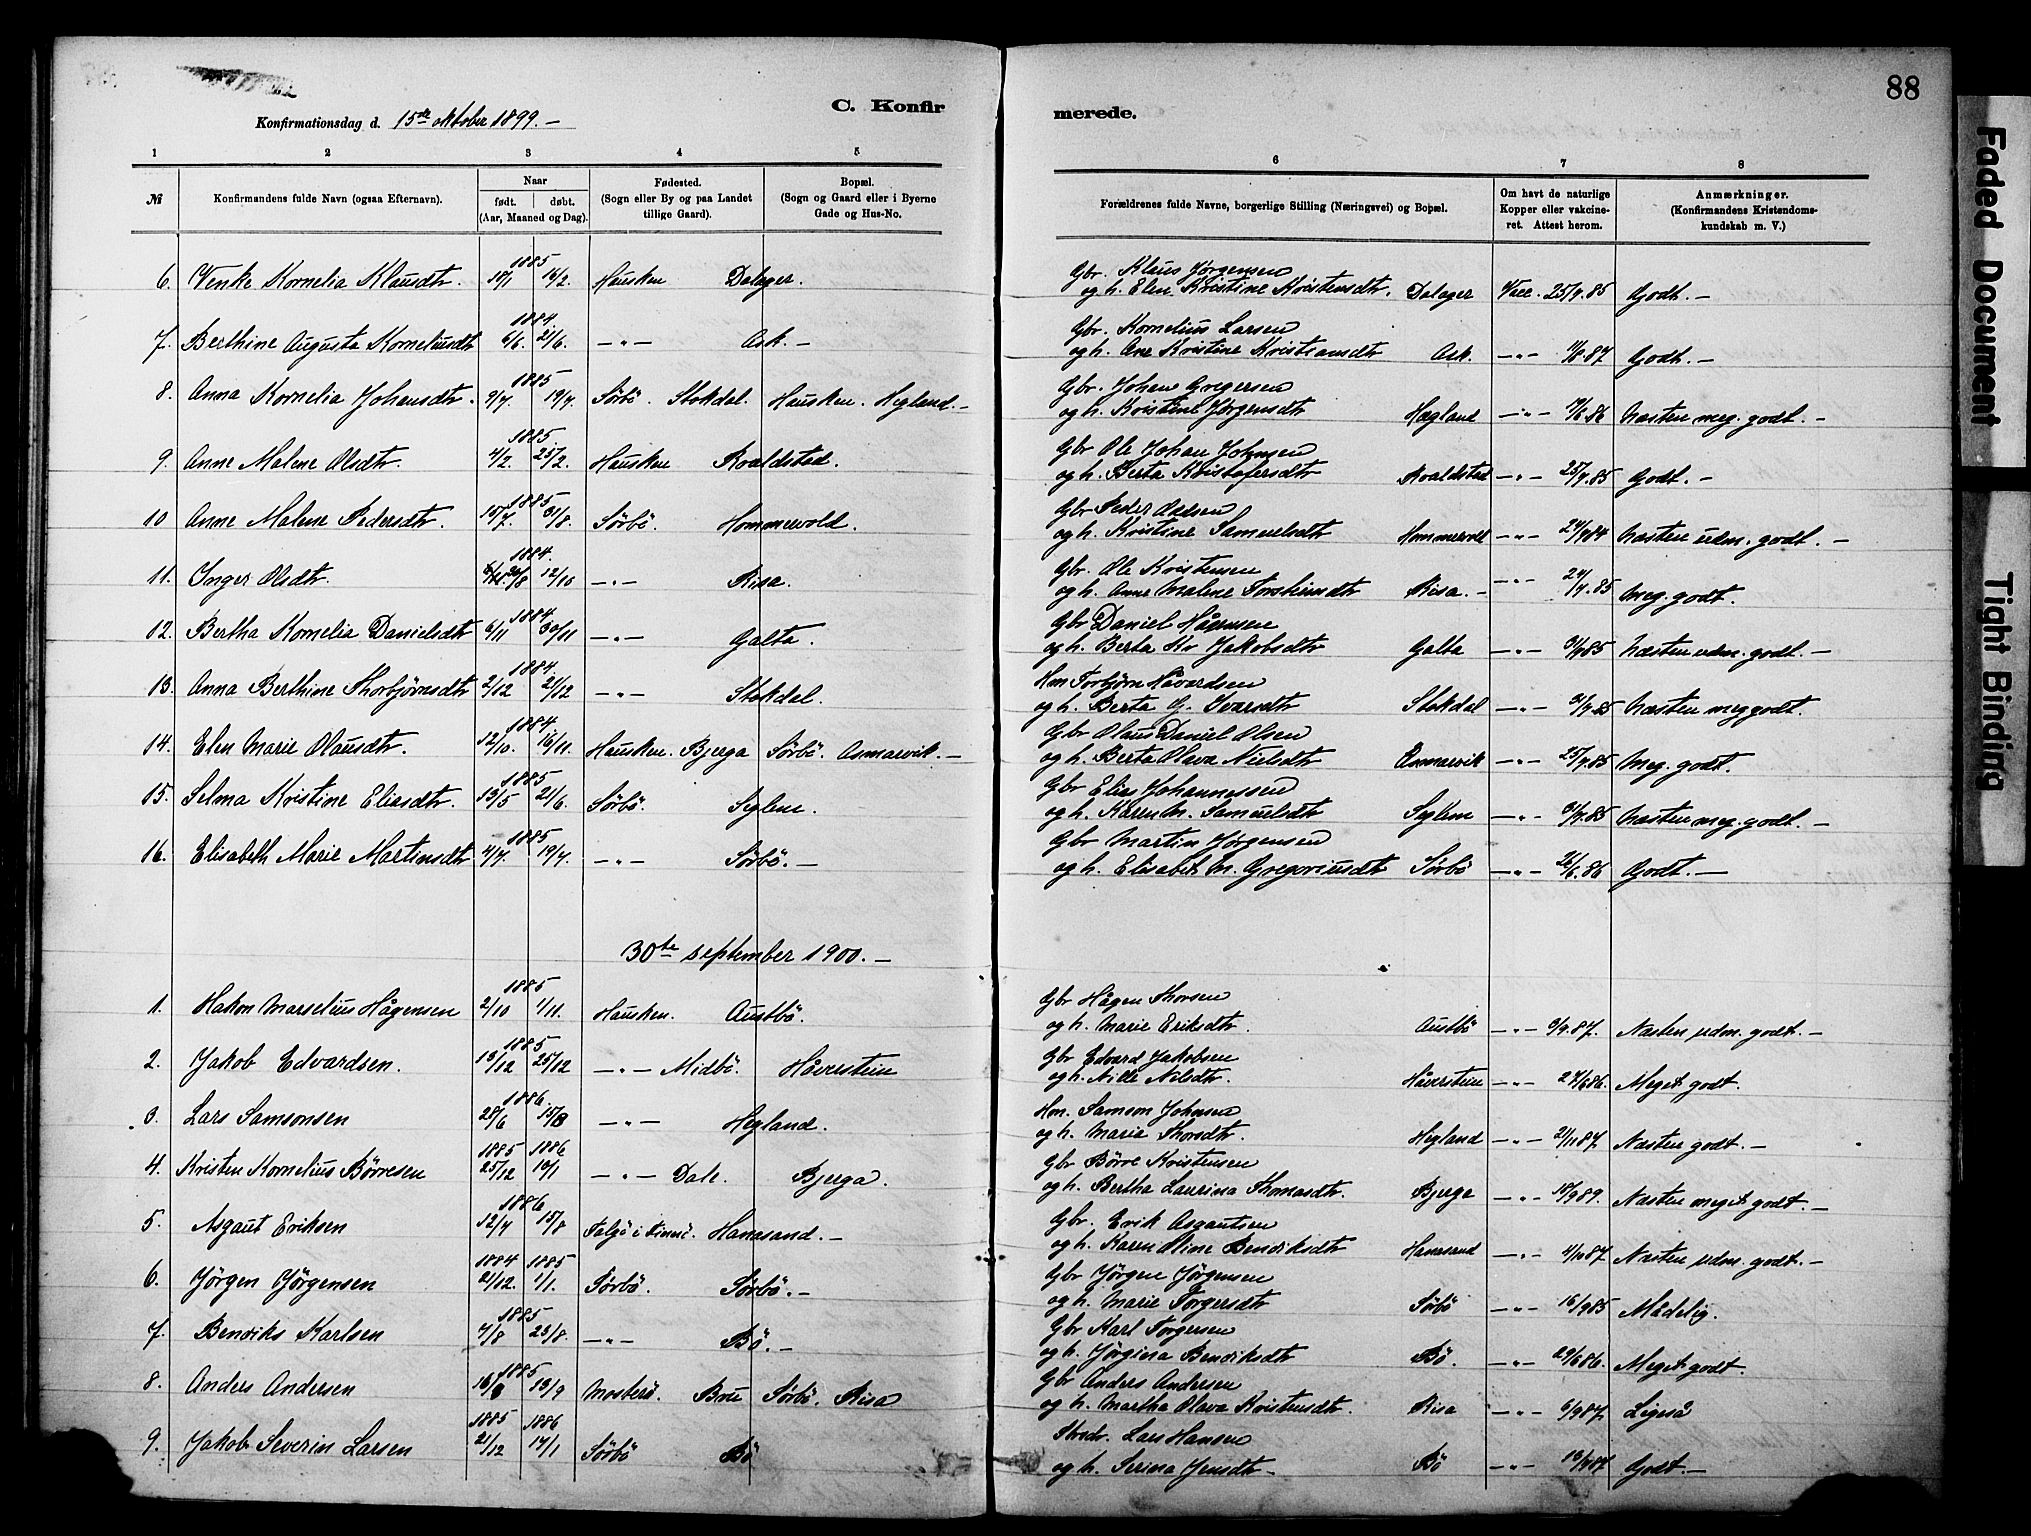 88
C. Konfirmerede.
Konfirmationsdag d. 15de oktober 1899. –
1 2 3 4 5 6 7 8
№ Konfirmandens fulde Navn (ogsaa Efternavn). Naar født. døbt. (Aar, Maaned og Dag). Fødested. (Sogn eller By og paa Landet tillige Gaard). Bopæl. (Sogn og Gaard eller i Byerne Gade og Hus-No. Forældrenes fulde Navne, borgerlige Stilling (Næringsvei) og Bopæl. Om havt de naturlige Kopper eller vakcineret. Attest herom. Anmærkninger. (Konfirmandens Kristendomskundskab m. V.)
1885 Gbr. Klaus Jørgensen
6. Venke Kornelia Klausdtr. 14/2. Hausken Dalager. og h. Elen Kristine Kristensdtr. Dalager Vacc. 25/9.85 Godt. –
1884 Gbr. Kornelius Larsen
7. Berthine Augusta Korneliusdtr 6/6. 21/6. –"– Ask. – og h. Ane Kristine Kristiansdtr Ask. –"– 11/8.87 Godt. –
1885 Gbr. Johan Gregersen
8. Anna Kornelia Johansdtr. 9/7. 19/7. Sørbö. Stokdal. Hausken. Hegland. – og h. Kristine Jørgensdtr Hægland –"– Næsten meg. godt. –
1885. Gbr Ole Johan Johnsen
9. Anne Malene Olsdtr. 4/2. 25/2. Hausken Roaldstad. og h. Berta Kristofersdtr Roaldstad –"– 25/9.85 Godt. –
1885 Gbr Peder Olsen
10 Anne Malene Pedersdtr. 15/7. Sørbö. Hommervold. og h. Kristine Samuelsdtr Hommervold –"– Næsten udm. godt. –
1884. Gbr. Ole Kristensen
11. Inger Olsdtr. 12/10 –"– Risa. og h. Anne Malene Torsteinsdtr Risa. – –"– Meg. godt.
1884 Gbr Daniel Hågensen
12. Bertha Kornelia Danielsdtr 6/11 30/11 –"– Galta. og h. Berta Kr Jakobsdtr Galta –"– Næsten udm. godt. –
1884. Hm Torbjörn Håvardsen
13. Anna Berthine Thorbjörnsdtr 2/12 21/12 –"– Stokdal. og h. Berta G. Ivarsdtr Stokdal –"– Næsten meg godt.
1884. Gbr Olaus Daniel Olsen
14. Elen Marie Olausdtr. 12/10. 16/11. Hausken. Bjerga Sørbö. Asmarvik. – og h. Berta Olava Nielsdtr Asmarvik –"– 25/9.85 Meg. godt.
1885 Gbr Elias Johannessen
15. Selma Kristine Eliasdtr. 13/5 21/6. Sørbö. Seglem. og h. Karen M. Samuelsdtr Seglem –"– Næsten meg. godt. –
1885 Gbr Martin Jørgensen
16. Elisabeth Marie Martinsdtr 4/7. 19/7. –"– Sørbö. – og h. Elisabet M. Gregoriusdtr Sørbö –"– Godt. –
30te september 1900. –
1885 Gbr Hågen Thorsen
1. Hakon Marselius Hågensen 2/10 1/11. Hausken. Austbö. og h. Marie Eriksdtr. Austbö –"– 3/9.87. Næsten udm. godt. –
1885 Gbr Edvard Jakobsen
2. Jakob Edvardsen. 13/12 25/12 –"– Midbö. Håverstein og h. Nille Nilsdtr. Håverstein –"– Meget godt.
1886. Hm. Samson Johnsen
3. Lars Samsonsen 28/6 15/8 –"– Hegland. og h. Marie Thorsdtr. Hegland –"– 21/11 87. Næsten godt. –
1885 1886 Gbr Börre Kristensen
4. Kristen Kornelius Börresen 25/12 10/1 –"– Dale. Bjerga. og h. Bertha Laurina Thomasdtr. Bjerga –"– 18/9 89. Næsten meget godt. –
1886 Gbr. Erik Asgautsen
5. Asgaut Eriksen 12/7 15/8 Talgö i Finnö. Hanasand. – og h. Karen Oline Bendiksdtr Hanasand –"– 4/10 87 Næsten udm. godt. –
1884 1885 Gbr Jörgen Jörgensen
6. Jörgen Jörgensen 21/12. 1/1. Sørbö. Sørbö. – og h. Marie Torgersdtr Sörbö –"– 16/9 85 Mådelig.
1885 Gbr Karl Torgersen
7. Bendiks Karlsen 7/8 23/8. –"– Bö. – og h. Jörgina Bendiksdtr Bö. –"– 29/6 86. Meget godt.
1885 Gbr Anders Andersen
8. Anders Andersen 16/8 13/9 Mosterö. Brue Sørbö. Risa og h. Martha Olava Kristensdtr. Risa –"– 6/9 87. Ligeså
1885 1886 Lars Hansen
9. Jakob Severin Larsen 21/12 17/1 Sørbö Bö og h. Serina Jensdtr – Bö –"– Godt. –
Faded Document
Tight Binding